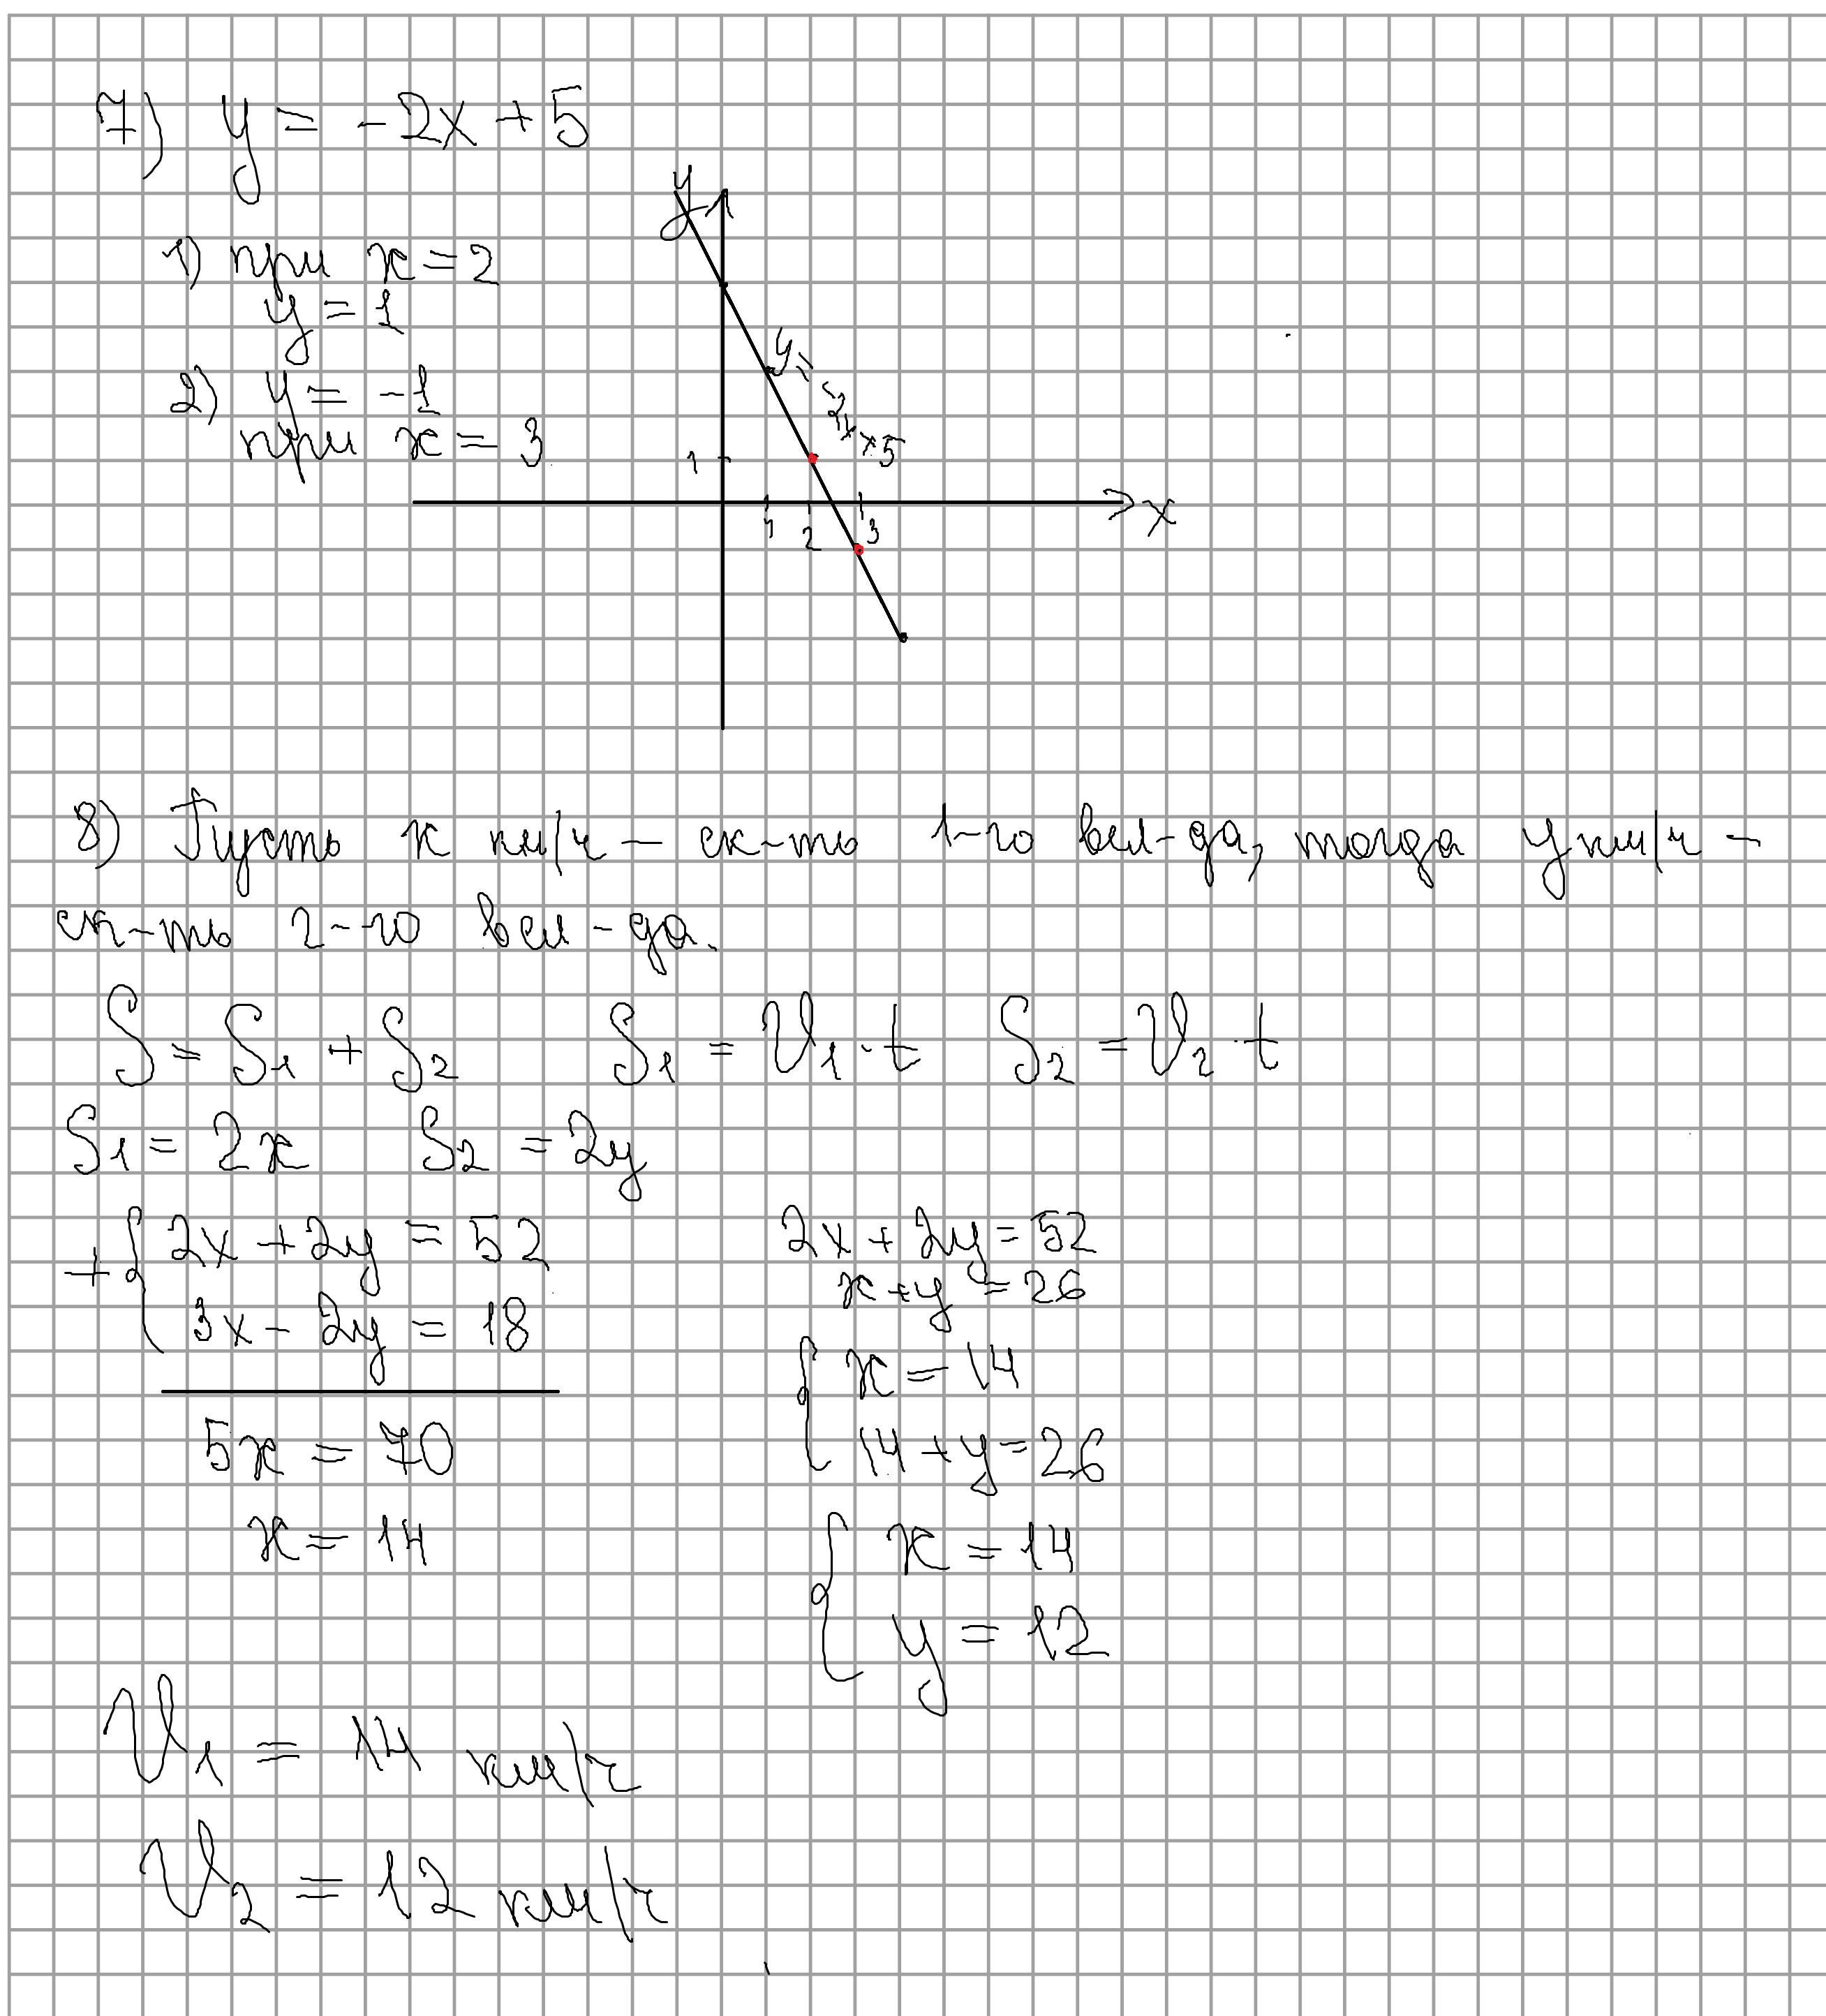 7) y = -2x + 5
1) при x = 2
y = 1
2) y = -1
при x = 3
y
y = -2x + 5
1
x
1 2 3
8) Пусть x км/ч - ск-ть 1-го вел-да, тогда y км/ч -
ск-ть 2-го вел-да.
S = S₁ + S₂ S₁ = V₁ · t S₂ = V₂ · t
S₁ = 2x S₂ = 2y
+ { 2x + 2y = 52
3x - 2y = 18
5x = 70
x = 14
2x + 2y = 52
x + y = 26
{ x = 14
14 + y = 26
{ x = 14
y = 12
V₁ = 14 км/ч
V₂ = 12 км/ч